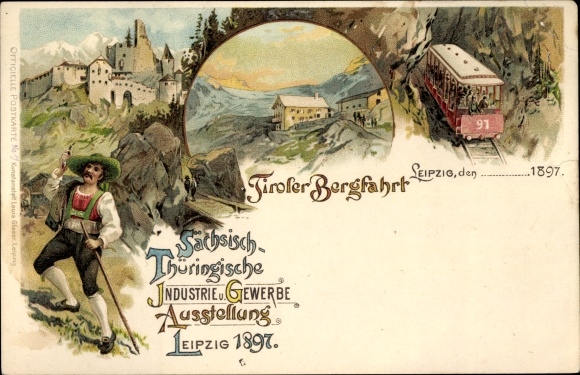 OFFICIELLE POSTKARTE No
Kunstanstalt Louis Glaser, Leipzig.
91
Tiroler Bergfahrt
LEIPZIG, den ............ 1897.
Sächsisch-
Thüringische
INDUSTRIE u. GEWERBE
Ausstellung
LEIPZIG 1897.